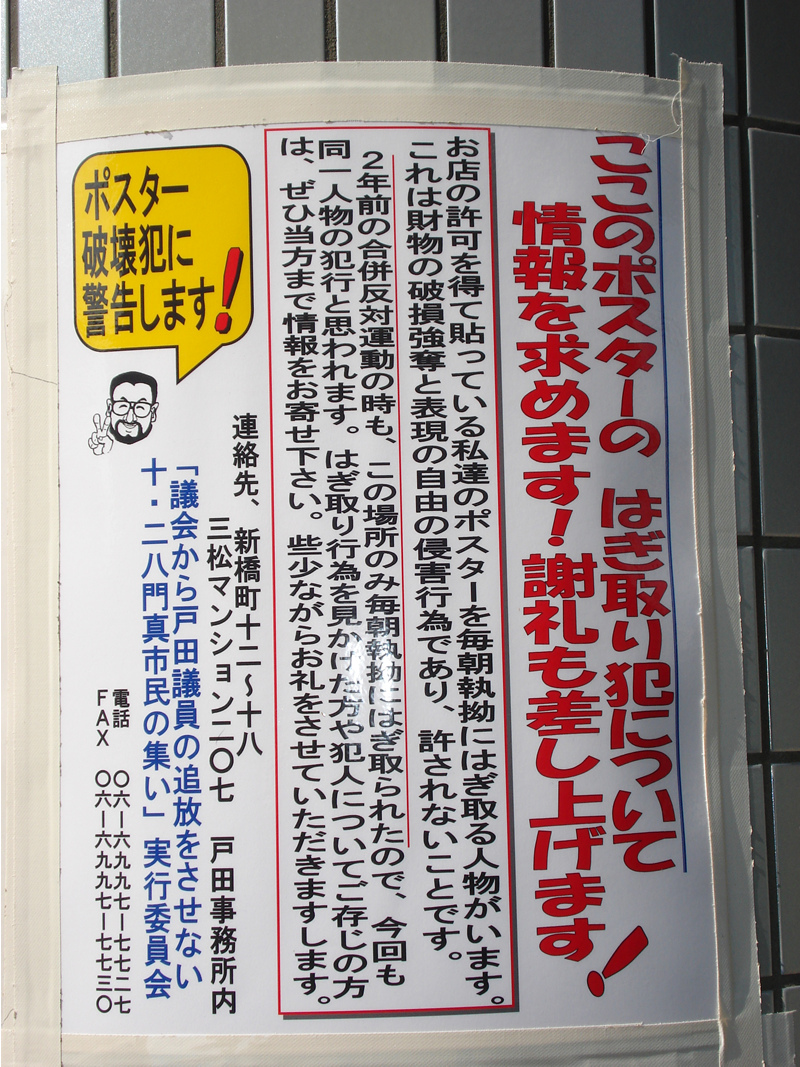 ここのポスターの はぎ取り犯について
情報を求めます！謝礼も差し上げます！
お店の許可を得て貼っている私達のポスターを毎朝執拗にはぎ取る人物がいます。
これは財物の破損強奪と表現の自由の侵害行為であり、許されないことです。
２年前の合併反対運動の時も、この場所のみ毎朝執拗にはぎ取られたので、今回も
同一人物の犯行と思われます。はぎ取り行為を見かけた方や犯人についてご存じの方
は、ぜひ当方まで情報をお寄せ下さい。些少ながらお礼をさせていただきますします。
ポスター
破壊犯に
警告します！
連絡先、新橋町十二〜十八
三松マンション二〇七 戸田事務所内
「議会から戸田議員の追放をさせない
十・二八門真市民の集い」実行委員会
電話 〇六ー六九九七ー七七二七
ＦＡＸ 〇六ー六九九七ー七七三〇